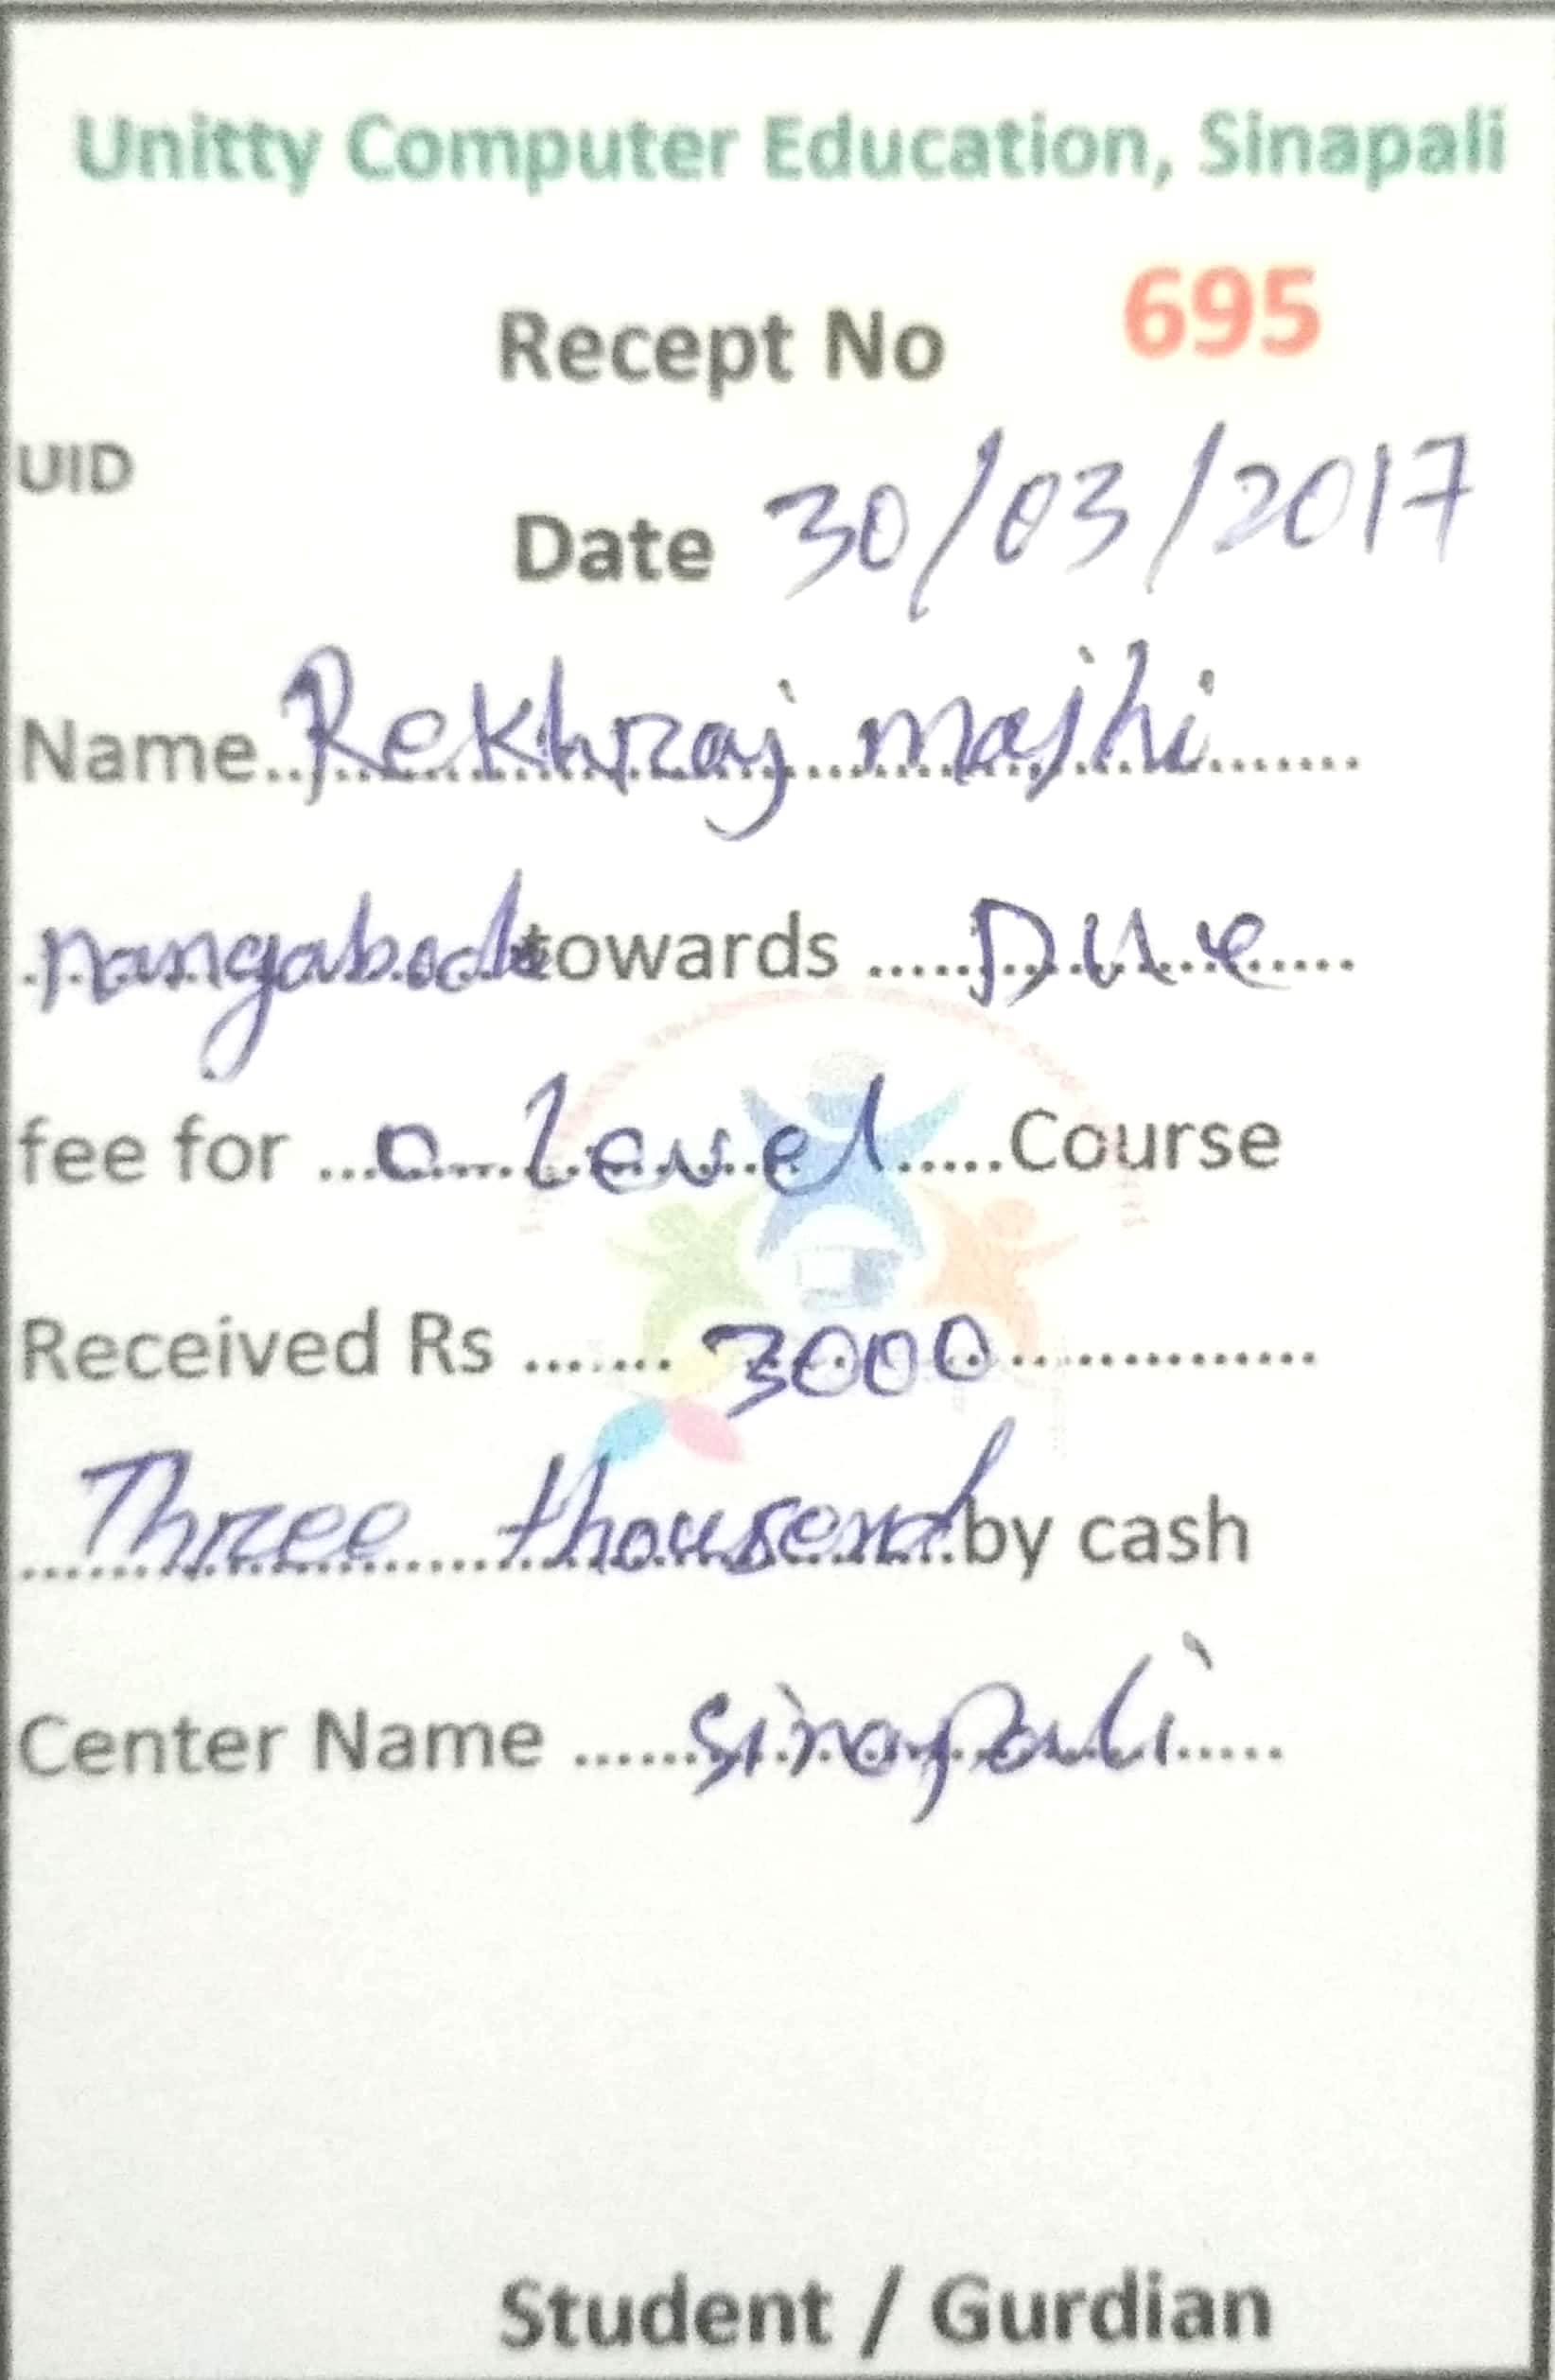 Unitty Computer Education, Sinapali
Recept No 695
UID
Date 30/03/2017
Name..Rekhraj majhi.......
nangabod towards .....Due.....
fee for ...o level.....Course
Received Rs ....... 3000...............
Three thousend by cash
Center Name ......sinapali.....
Student / Gurdian